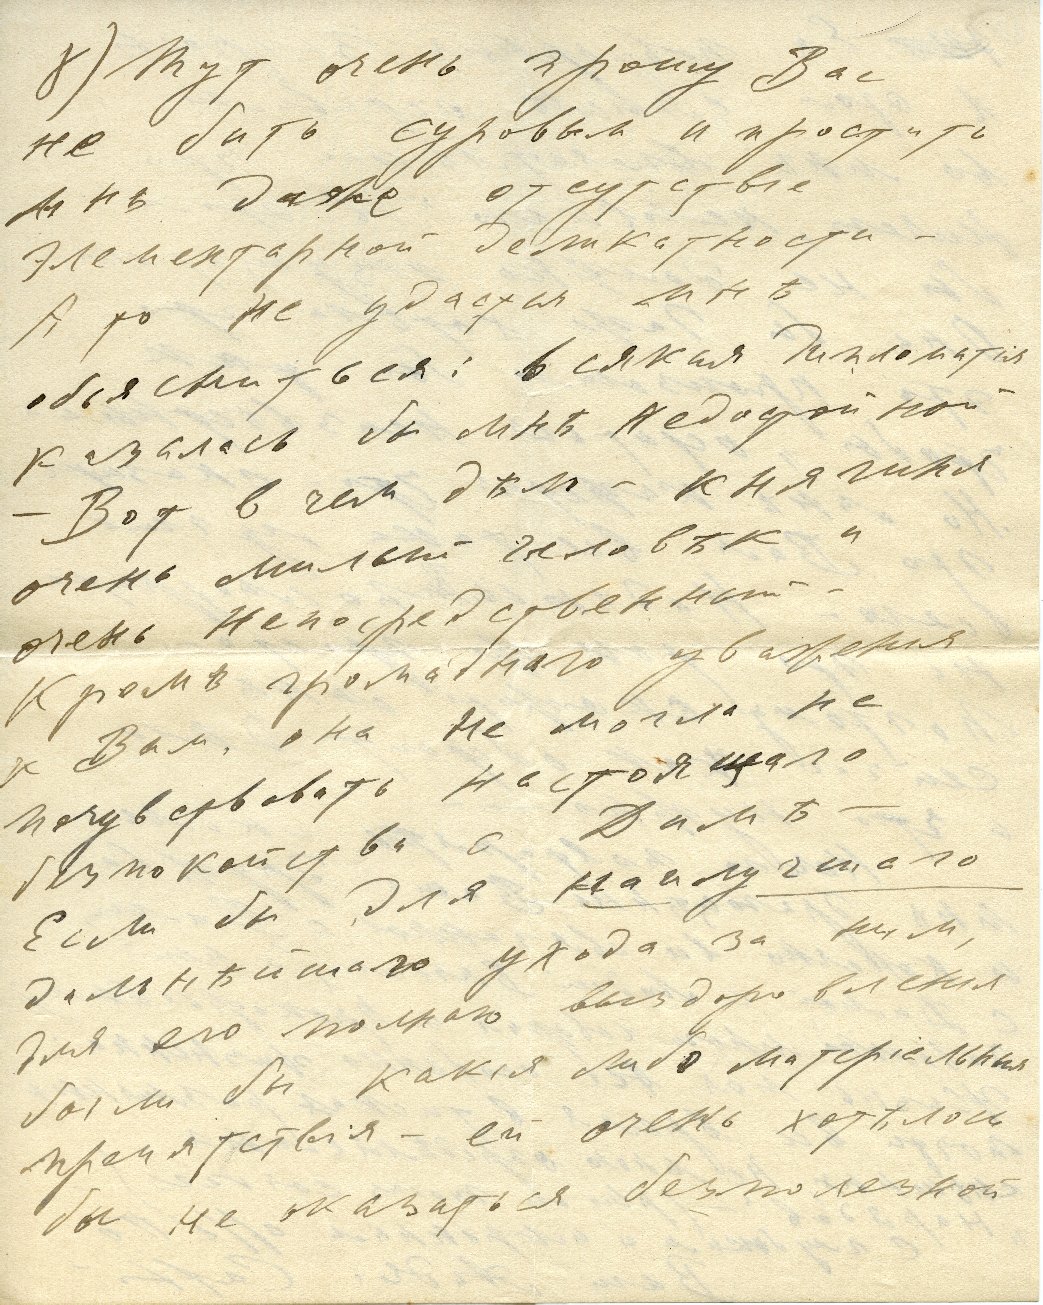 γ) Тут очень прошу Вас
не быть суровым и простить
мнѣ даже отсутствие
элементарной деликатности –
А то не удастся мнѣ
объясниться: всякая дипломатия
казалась бы мнѣ недостойной
– Вот в чем дѣло – княгиня
очень милый человѣк и
очень непосредственный –
Кромѣ громаднаго уважения
к Вам, она не могла не
почувствовать настоящаго
безпокойства о Димѣ –
Если бы для наилучшаго
дальнѣйшаго ухода за ним,
для его полнаго выздоровления
были бы какія либо матеріальныя
препятствія – ей очень хотѣлось
бы не оказаться безполезной